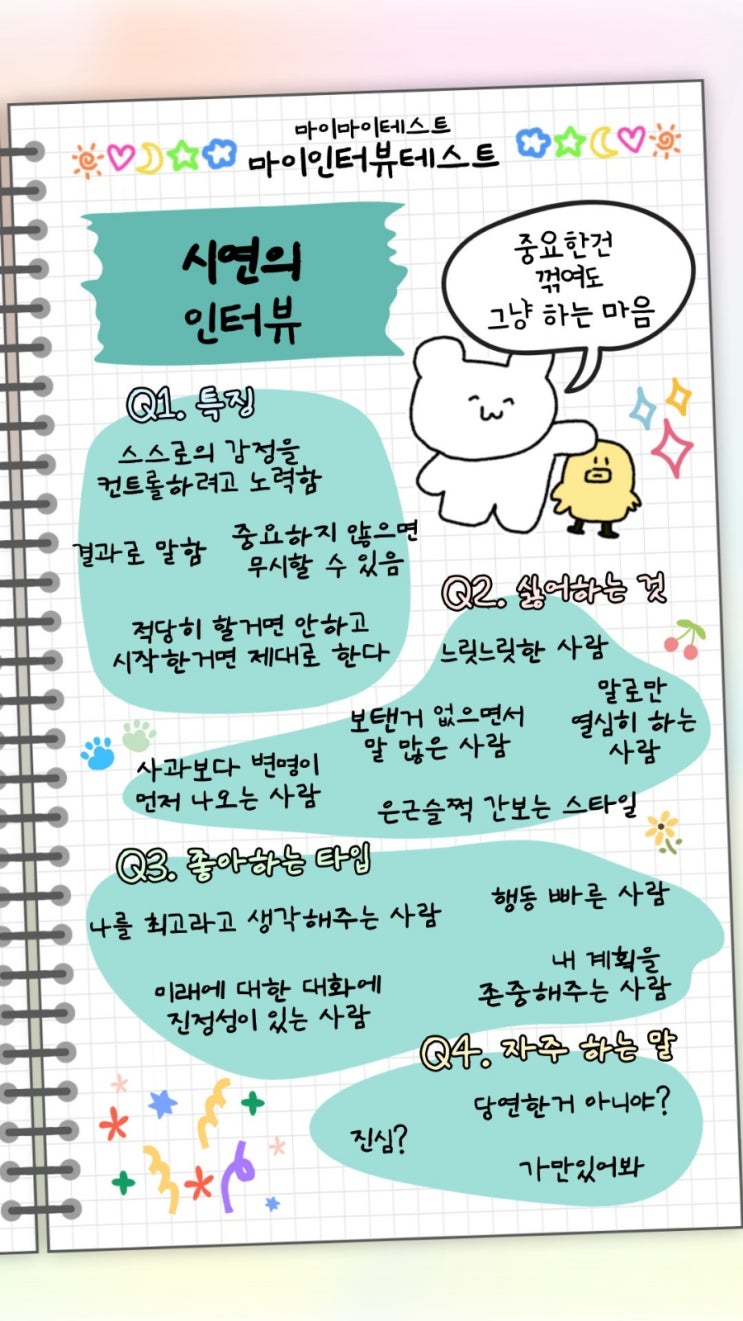 마이마이테스트
마이인터뷰테스트
시연의
인터뷰
중요한건
꺾여도
그냥 하는 마음
Q1. 특징
스스로의 감정을
컨트롤하려고 노력함
결과로 말함
중요하지 않으면
무시할 수 있음
적당히 할거면 안하고
시작한거면 제대로 한다
Q2. 싫어하는 것
느릿느릿한 사람
말로만
열심히 하는
사람
보탠거 없으면서
말 많은 사람
사과보다 변명이
먼저 나오는 사람
은근슬쩍 간보는 스타일
Q3. 좋아하는 타입
나를 최고라고 생각해주는 사람
행동 빠른 사람
미래에 대한 대화에
진정성이 있는 사람
내 계획을
존중해주는 사람
Q4. 자주 하는 말
당연한거 아니야?
진심?
가만있어봐